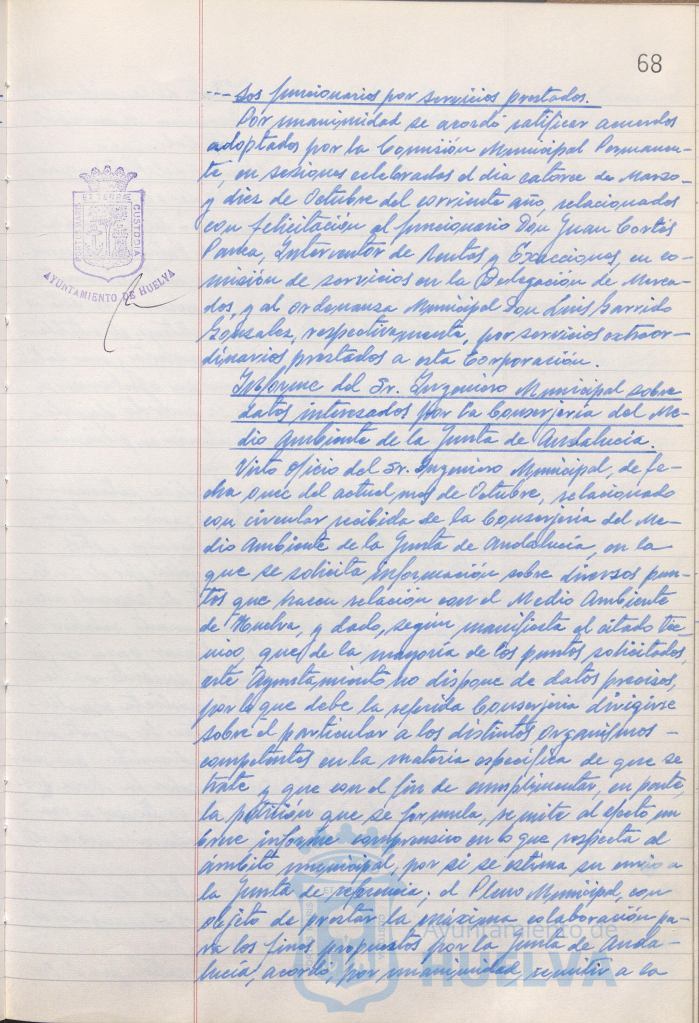 68
--- sos funcionarios por servicios prestados.
Por unanimidad se acordó ratificar acuerdos
adoptados por la Comisión Municipal Permanen-
te, en sesiones celebradas el día catorce de Marzo
y diez de Octubre del corriente año, relacionados
con felicitación al funcionario Don Juan Cortés
Parea, Interventor de Rentas y Exacciones, en co-
misión de servicios en la Delegación de Merca-
dos, y al ordenanza Municipal Don Luis Garrido
González, respectivamente, por servicios extraor-
dinarios prestados a esta Corporación.
Informe del Sr. Ingeniero Municipal sobre
datos interesados por la Consejería del Me-
dio Ambiente de la Junta de Andalucía.
Visto oficio del Sr. Ingeniero Municipal, de fe-
cha once del actual mes de Octubre, relacionado
con circular recibida de la Consejería del Me-
dio Ambiente de la Junta de Andalucía, en la
que se solicita información sobre diversos pun-
tos que hacen relación con el Medio Ambiente
de Huelva, y dado, según manifiesta el citado Téc
nico, que de la mayoría de los puntos solicitados,
este Ayuntamiento no dispone de datos precisos,
por lo que debe la referida Consejería dirigirse
sobre el particular a los distintos Organismos -
competentes en la materia específica de que se
trate y que con el fin de cumplimentar, en parte,
la petición que se formula, remite al efecto un
breve informe comprensivo en lo que respecta al
ámbito municipal, por si se estima su envío a
la Junta de referencia; el Pleno Municipal, con
objeto de prestar la máxima colaboración pa-
ra los fines propuestos por la Junta de Anda-
lucía, acordó, por unanimidad, remitir a la
PORTUS MARIS ET TERRAE CUSTODIA
AYUNTAMIENTO DE HUELVA
Ayuntamiento de
HUELVA